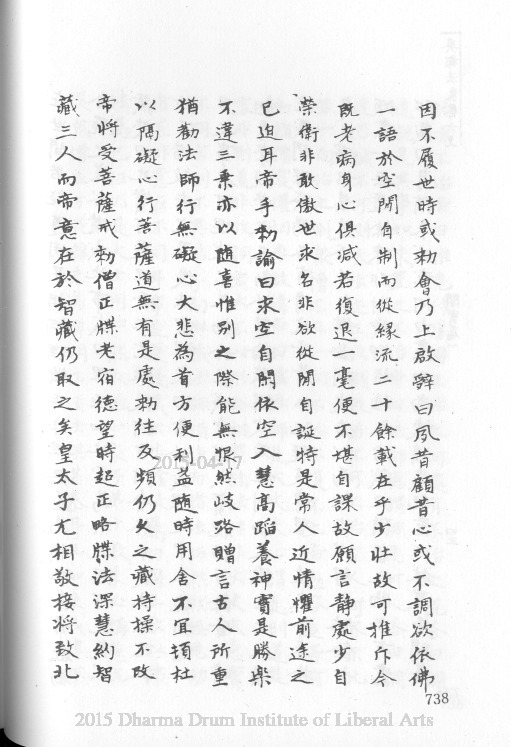 因不履世時或勑會乃上啟辭曰夙昔顧昔心或不調欲依佛
一語於空閑自制而從緣流二十餘載在乎少壯故可推斥今
既老病身心俱減若復退一毫便不堪自課故願言靜處少自
榮衛非敢傲世求名非欲從閑自誕特是常人近情懼前途之
已迫耳帝手勑諭曰求空自閑依空入慧高蹈養神實是勝樂
不違三乘亦以隨喜惟別之際能無恨然岐路贈言古人所重
猶勸法師行無礙心大悲為首方便利益隨時用舍不宜頓杜
以隔礙心行菩薩道無有是處勑往及頻仍久之藏持操不改
帝將受菩薩戒勑僧正牒老宿德望時超正略牒法深慧約智
藏三人而帝意在於智藏仍取之矣皇太子尤相敬接將致北
738
2015-04-17
2015 Dharma Drum Institute of Liberal Arts